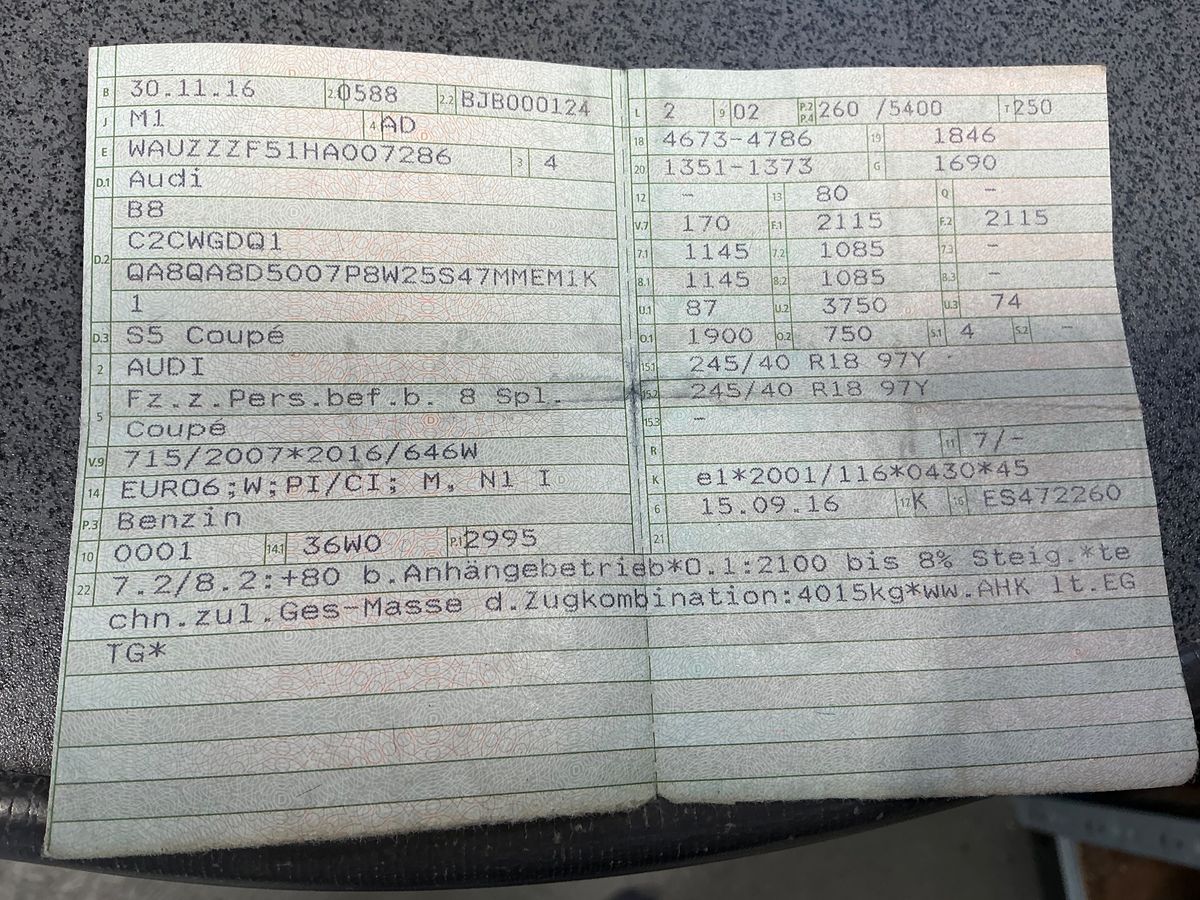 B 30.11.16 2.1 0588 2.2 BJB000124
J M1 4 AD
E WAUZZZF51HA007286 3 4
D.1 Audi
B8
D.2 C2CWGDQ1
QA8QA8D5007P8W25S47MMEM1K
1
D.3 S5 Coupé
2 AUDI
5 Fz.z.Pers.bef.b. 8 Spl.
Coupé
V.9 715/2007*2016/646W
14 EURO6;W;PI/CI; M, N1 I
P.3 Benzin
10 0001 14.1 36W0 P.1 2995
L 2 9 02 P.2 P.4 260 /5400 T 250
18 4673-4786 19 1846
20 1351-1373 G 1690
12 - 13 80 Q -
V.7 170 F.1 2115 F.2 2115
7.1 1145 7.2 1085 7.3 -
8.1 1145 8.2 1085 8.3 -
U.1 87 U.2 3750 U.3 74
O.1 1900 O.2 750 S.1 4 S.2 -
15.1 245/40 R18 97Y
15.2 245/40 R18 97Y
15.3 -
R 11 7/-
K e1*2001/116*0430*45
6 15.09.16 17 K 16 ES472260
21
22 7.2/8.2:+80 b.Anhängebetrieb*O.1:2100 bis 8% Steig.*te
chn.zul.Ges-Masse d.Zugkombination:4015kg*ww.AHK lt.EG
TG*